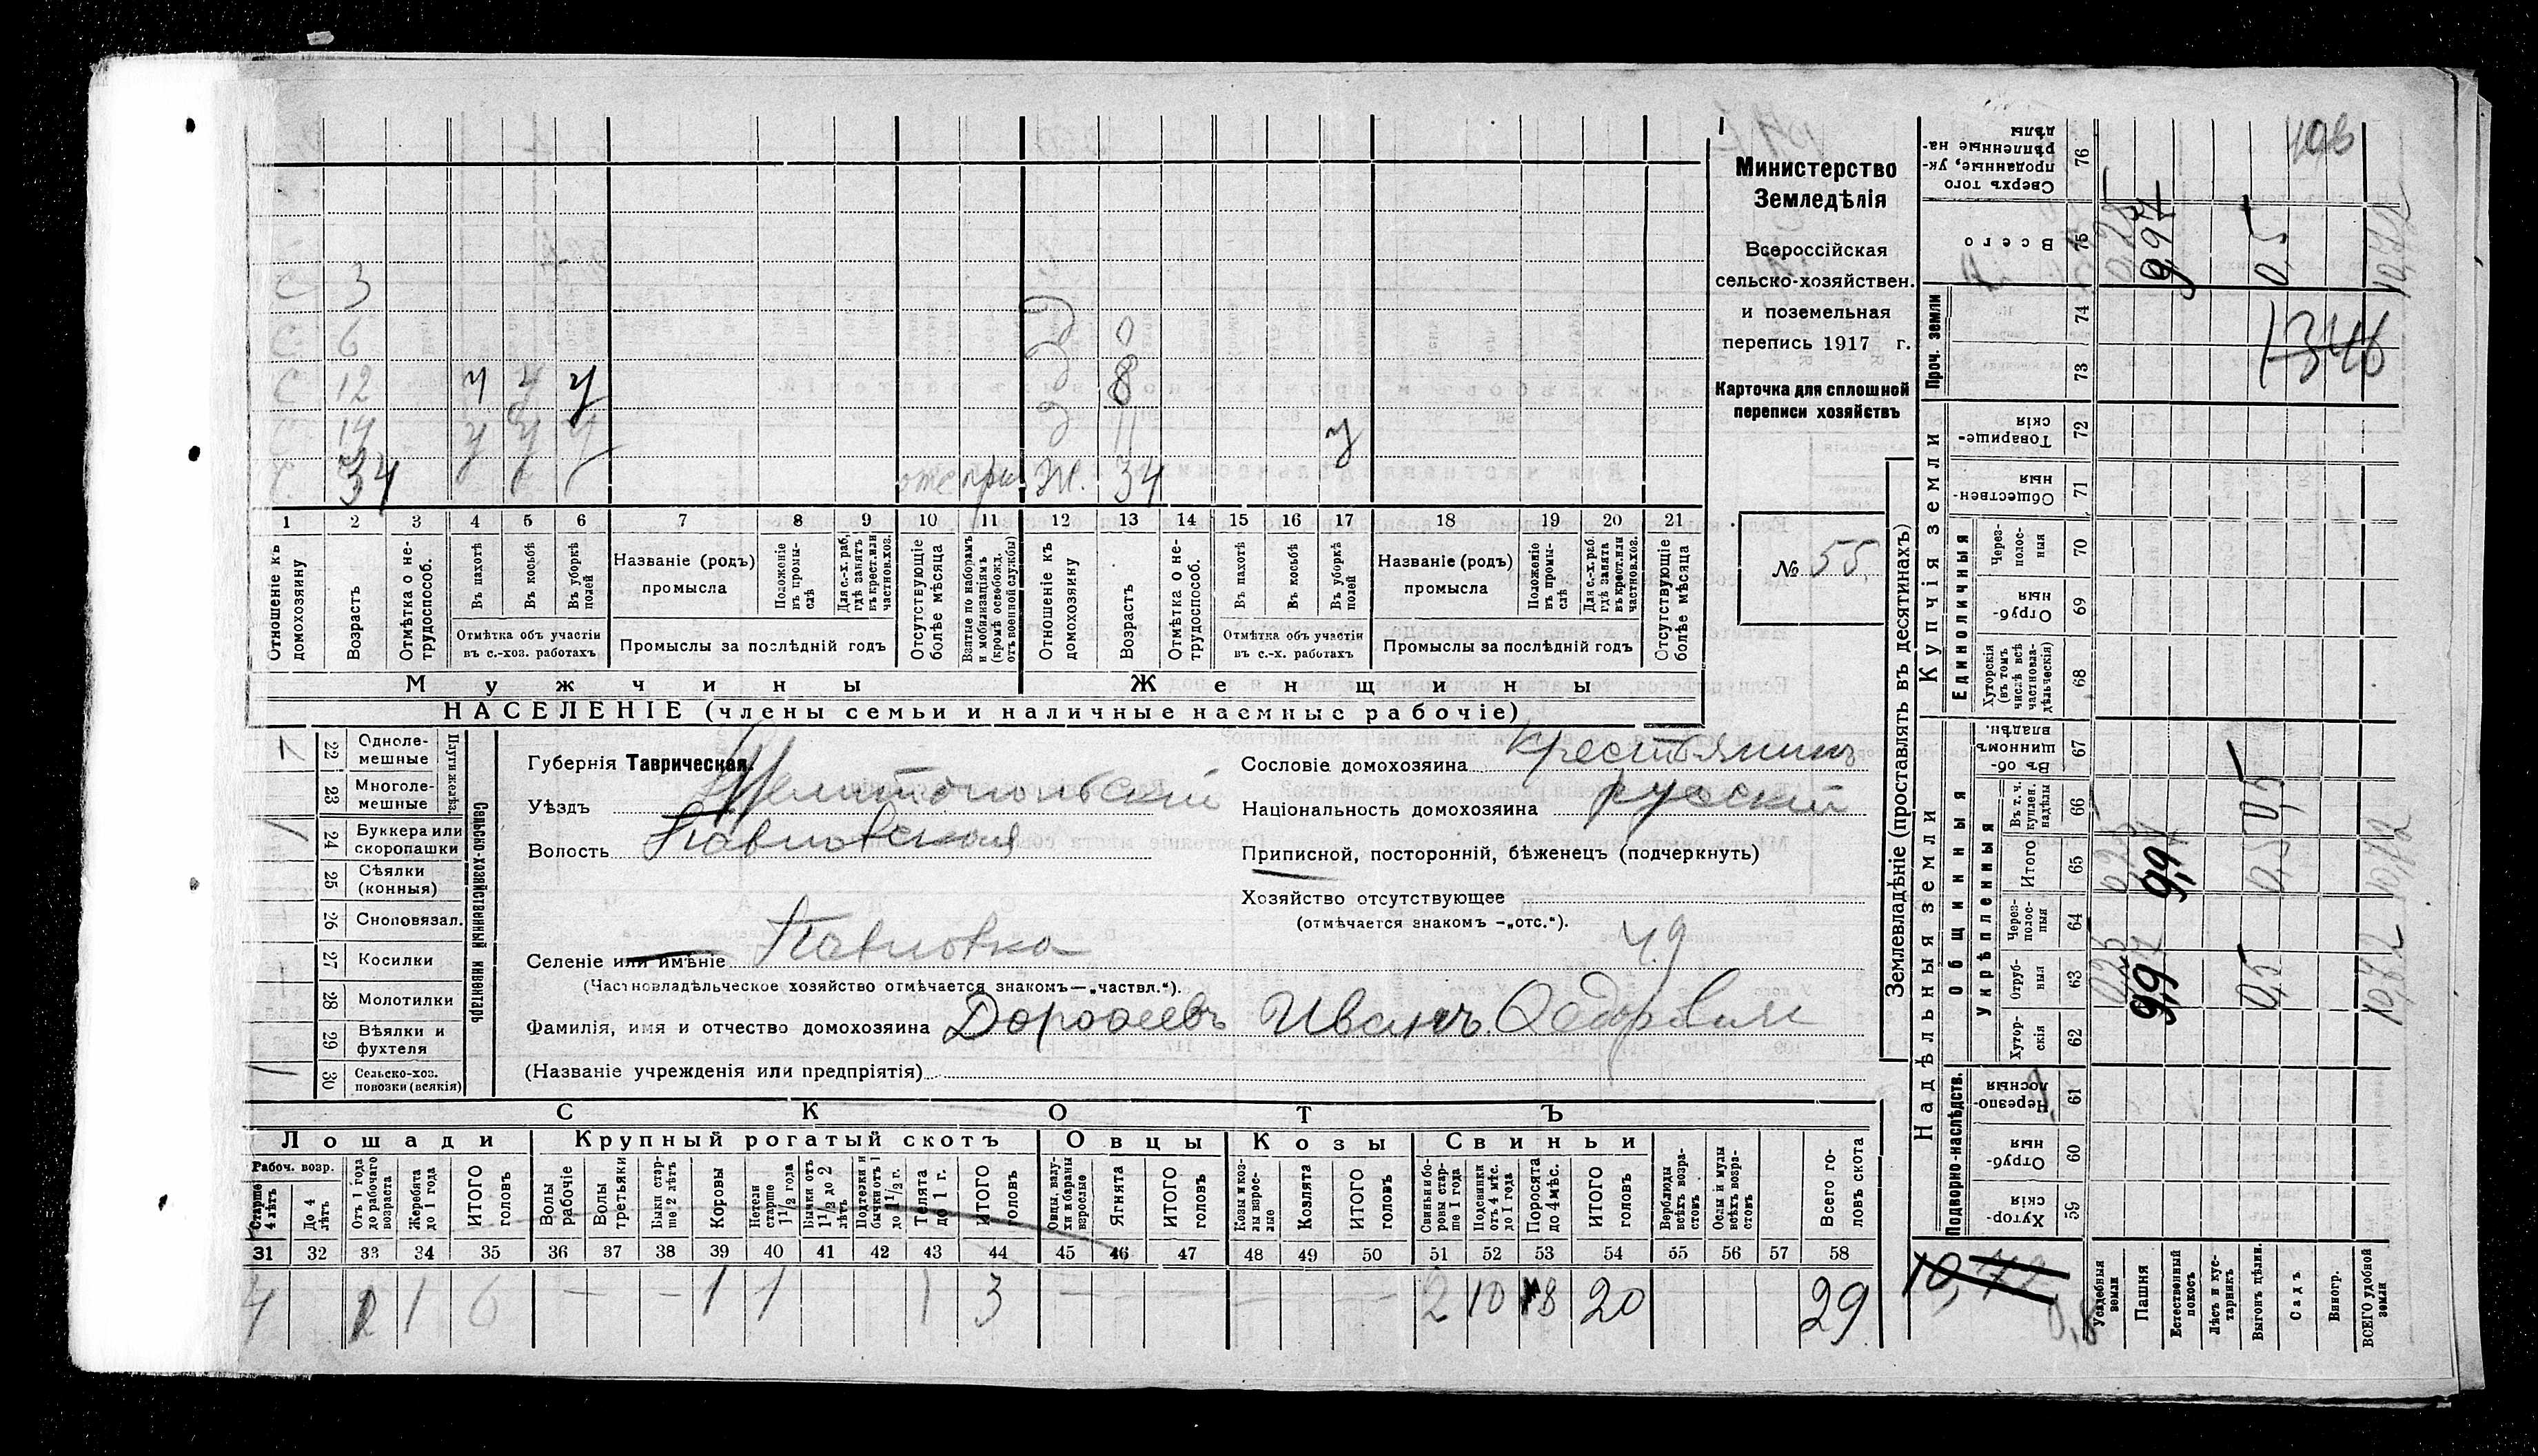 С 3
С 6 Д 0
С 12 у у у Д 8
С 14 у у у Д 11 у
34 Ж. 34
1 2 3 4 5 6 7 8 9 10 11 12 13 14 15 16 17 18 19 20 21
Отношеніе къ домохозяину
Возрастъ
Отмѣтка о не-трудоспособ.
Въ пахотѣ
Въ косьбѣ
Въ уборкѣ полей
Отмѣтка объ участіи въ с.-хоз. работахъ
Названіе (родъ) промысла
Положеніе въ промы-слѣ
Для с.-х. раб, гдѣ занятъ въ крест. или частнов. хоз.
Промыслы за послѣдній годъ
Отсутствующіе болѣе мѣсяца
Взятые по наборамъ и мобилизаціямъ (кромѣ освобожд. отъ военной службы)
Отношеніе къ домохозяину
Возрастъ
Отмѣтка о не-трудоспособ.
Въ пахотѣ
Въ косьбѣ
Въ уборкѣ полей
Отмѣтка объ участіи въ с.-х. работахъ
Названіе (родъ) промысла
Положеніе въ промы-слѣ
Для с.-х. раб. гдѣ занята въ крест. или частнов. хоз.
Промыслы за послѣдній годъ
Отсутствующіе болѣе мѣсяца
Мужчины Женщины
НАСЕЛЕНІЕ (члены семьи и наличные наемные рабочіе)
Министерство
Земледѣлія
Всероссійская
сельско-хозяйствен.
и поземельная
перепись 1917 г.
Карточка для сплошной
переписи хозяйствъ
№ 55.
22 Одноле-мешные
23 Многоле-мешные
24 Буккера или скоропашки
25 Сѣялки (конныя)
26 Сноповязал.
27 Косилки
28 Молотилки
29 Вѣялки и фухтеля
30 Сельско-хоз. повозки (всякія)
Сельско-хозяйственный инвентарь
Губернія Таврическая.
Уѣздъ Мелитопольскій
Волость Павловская
Селеніе или имѣніе Павловка
(Частновладѣльческое хозяйство отмѣчается знакомъ—„частвл.“).
Фамилія, имя и отчество домохозяина Дорофеевъ Иванъ Ѳедоровичъ
(Названіе учрежденія или предпріятія)
Сословіе домохозяина Крестьянинъ
Національность домохозяина русскій
Приписной, посторонній, бѣженецъ (подчеркнуть)
Хозяйство отсутствующее
(отмѣчается знакомъ —„отс.“).
СКОТЪ
Лошади Крупный рогатый скотъ Овцы Козы Свиньи
Рабоч. возр.
Старше 4 лѣтъ
До 4 лѣтъ
Отъ 1 года до рабочаго возраста
Жеребята до 1 года
ИТОГО головъ
Волы рабочіе
Волы третьяки
Быки стар-ше 2 лѣтъ
Коровы
Нетели старше 1 1/2 года
Бычки отъ 1 1/2 до 2 лѣтъ
Подтелки и бычки отъ 1 до 1 1/2 г.
Телята до 1 г.
ИТОГО головъ
Овцы, валу-хи и бараны взрослые
Ягнята
ИТОГО головъ
Козы и коз-лы взрос-лые
Козлята
ИТОГО головъ
Свиньи и бо-ровы стар-ше 1 года
Подсвинки отъ 4 мѣс. до 1 года
Поросята до 4 мѣс.
ИТОГО головъ
Верблюды всѣхъ возра-стовъ
Ослы и мулы всѣхъ возра-стовъ
Всего го-ловъ скота
31 32 33 34 35 36 37 38 39 40 41 42 43 44 45 46 47 48 49 50 51 52 53 54 55 56 57 58
4 1 6 — — 1 1 1 3 — — — — — — 2 10 8 20 29
Землевладѣніе (проставлять въ десятинахъ)
Надѣльныя земли Купчія земли Проч. земли
Подворно-наслѣдств. Общинныя Единоличныя
Укрѣпленныя
59 Хутор-скія
60 Отруб-ныя
61 Черезпо-лосныя
62 Хутор-скія
63 Отруб-ныя
64 Черезполос-ныя
65 Итого
66 Въ т. ч. куплен. надѣлы
67 Въ об-щинномъ владѣн.
68 Хуторскія (въ томъ числѣ всѣ частновла-дѣльческія)
69 Отруб-ныя
70 Через-полос-ныя
71 Обществен-ныя
72 Товарище-скія
73
74
75 Всего
76 Сверхъ того проданные, ук-рѣпленные на-дѣлы
Усадебныя земли
Пашня
Естественный покосъ
Лѣсъ и кус-тарникъ
Выгонъ цѣлин.
Садъ
Виногр.
ВСЕГО удобной земли
0,5
0,5
1346